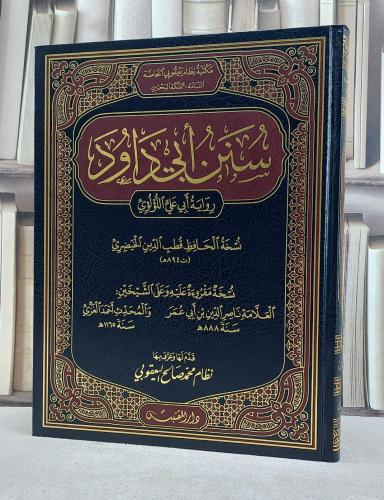 مكتبة نظام يعقوبي الخاصة
المنامة - مملكة البحرين
سنن أبي داود
رواية أبي علي اللؤلؤي
نسخة الحافظ قطب الدين الخيضري
(ت ٨٩٤هـ)
نسخة مقروءة عليه وعلى الشيخين:
العلامة ناصر الدين بن أبي عمر والمحدث أحمد الغزي
سنة ٨٨٨هـ سنة ١١٦٥هـ
قدم لها وعرف بها
نظام محمد صالح يعقوبي
دار المقتبس